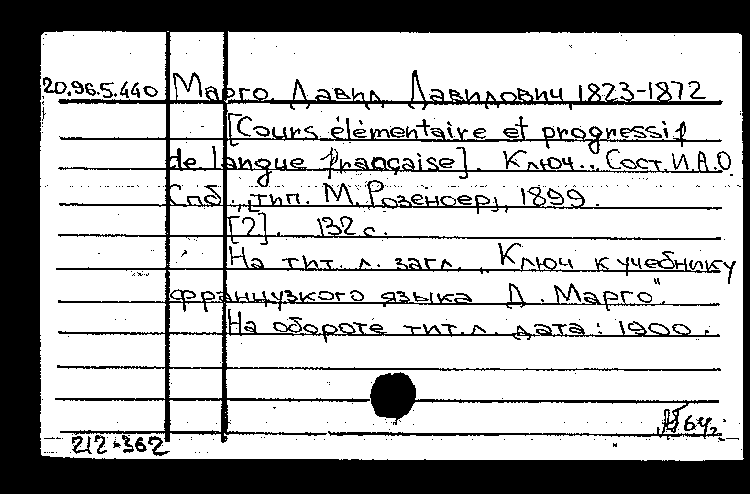 20.96.5.440 Марго, Давид Давидович, 1823-1872
[Cours élémentaire et progressif
de langue française]. Ключ.. Сост. И.А.О.
Спб., тип. М. Розеноер, 1899.
[2]. 132 с.
На тит. л. загл. „Ключ к учебнику
французкого языка Д. Марго".
На обороте тит. л. дата: 1900.
64г.
212-362